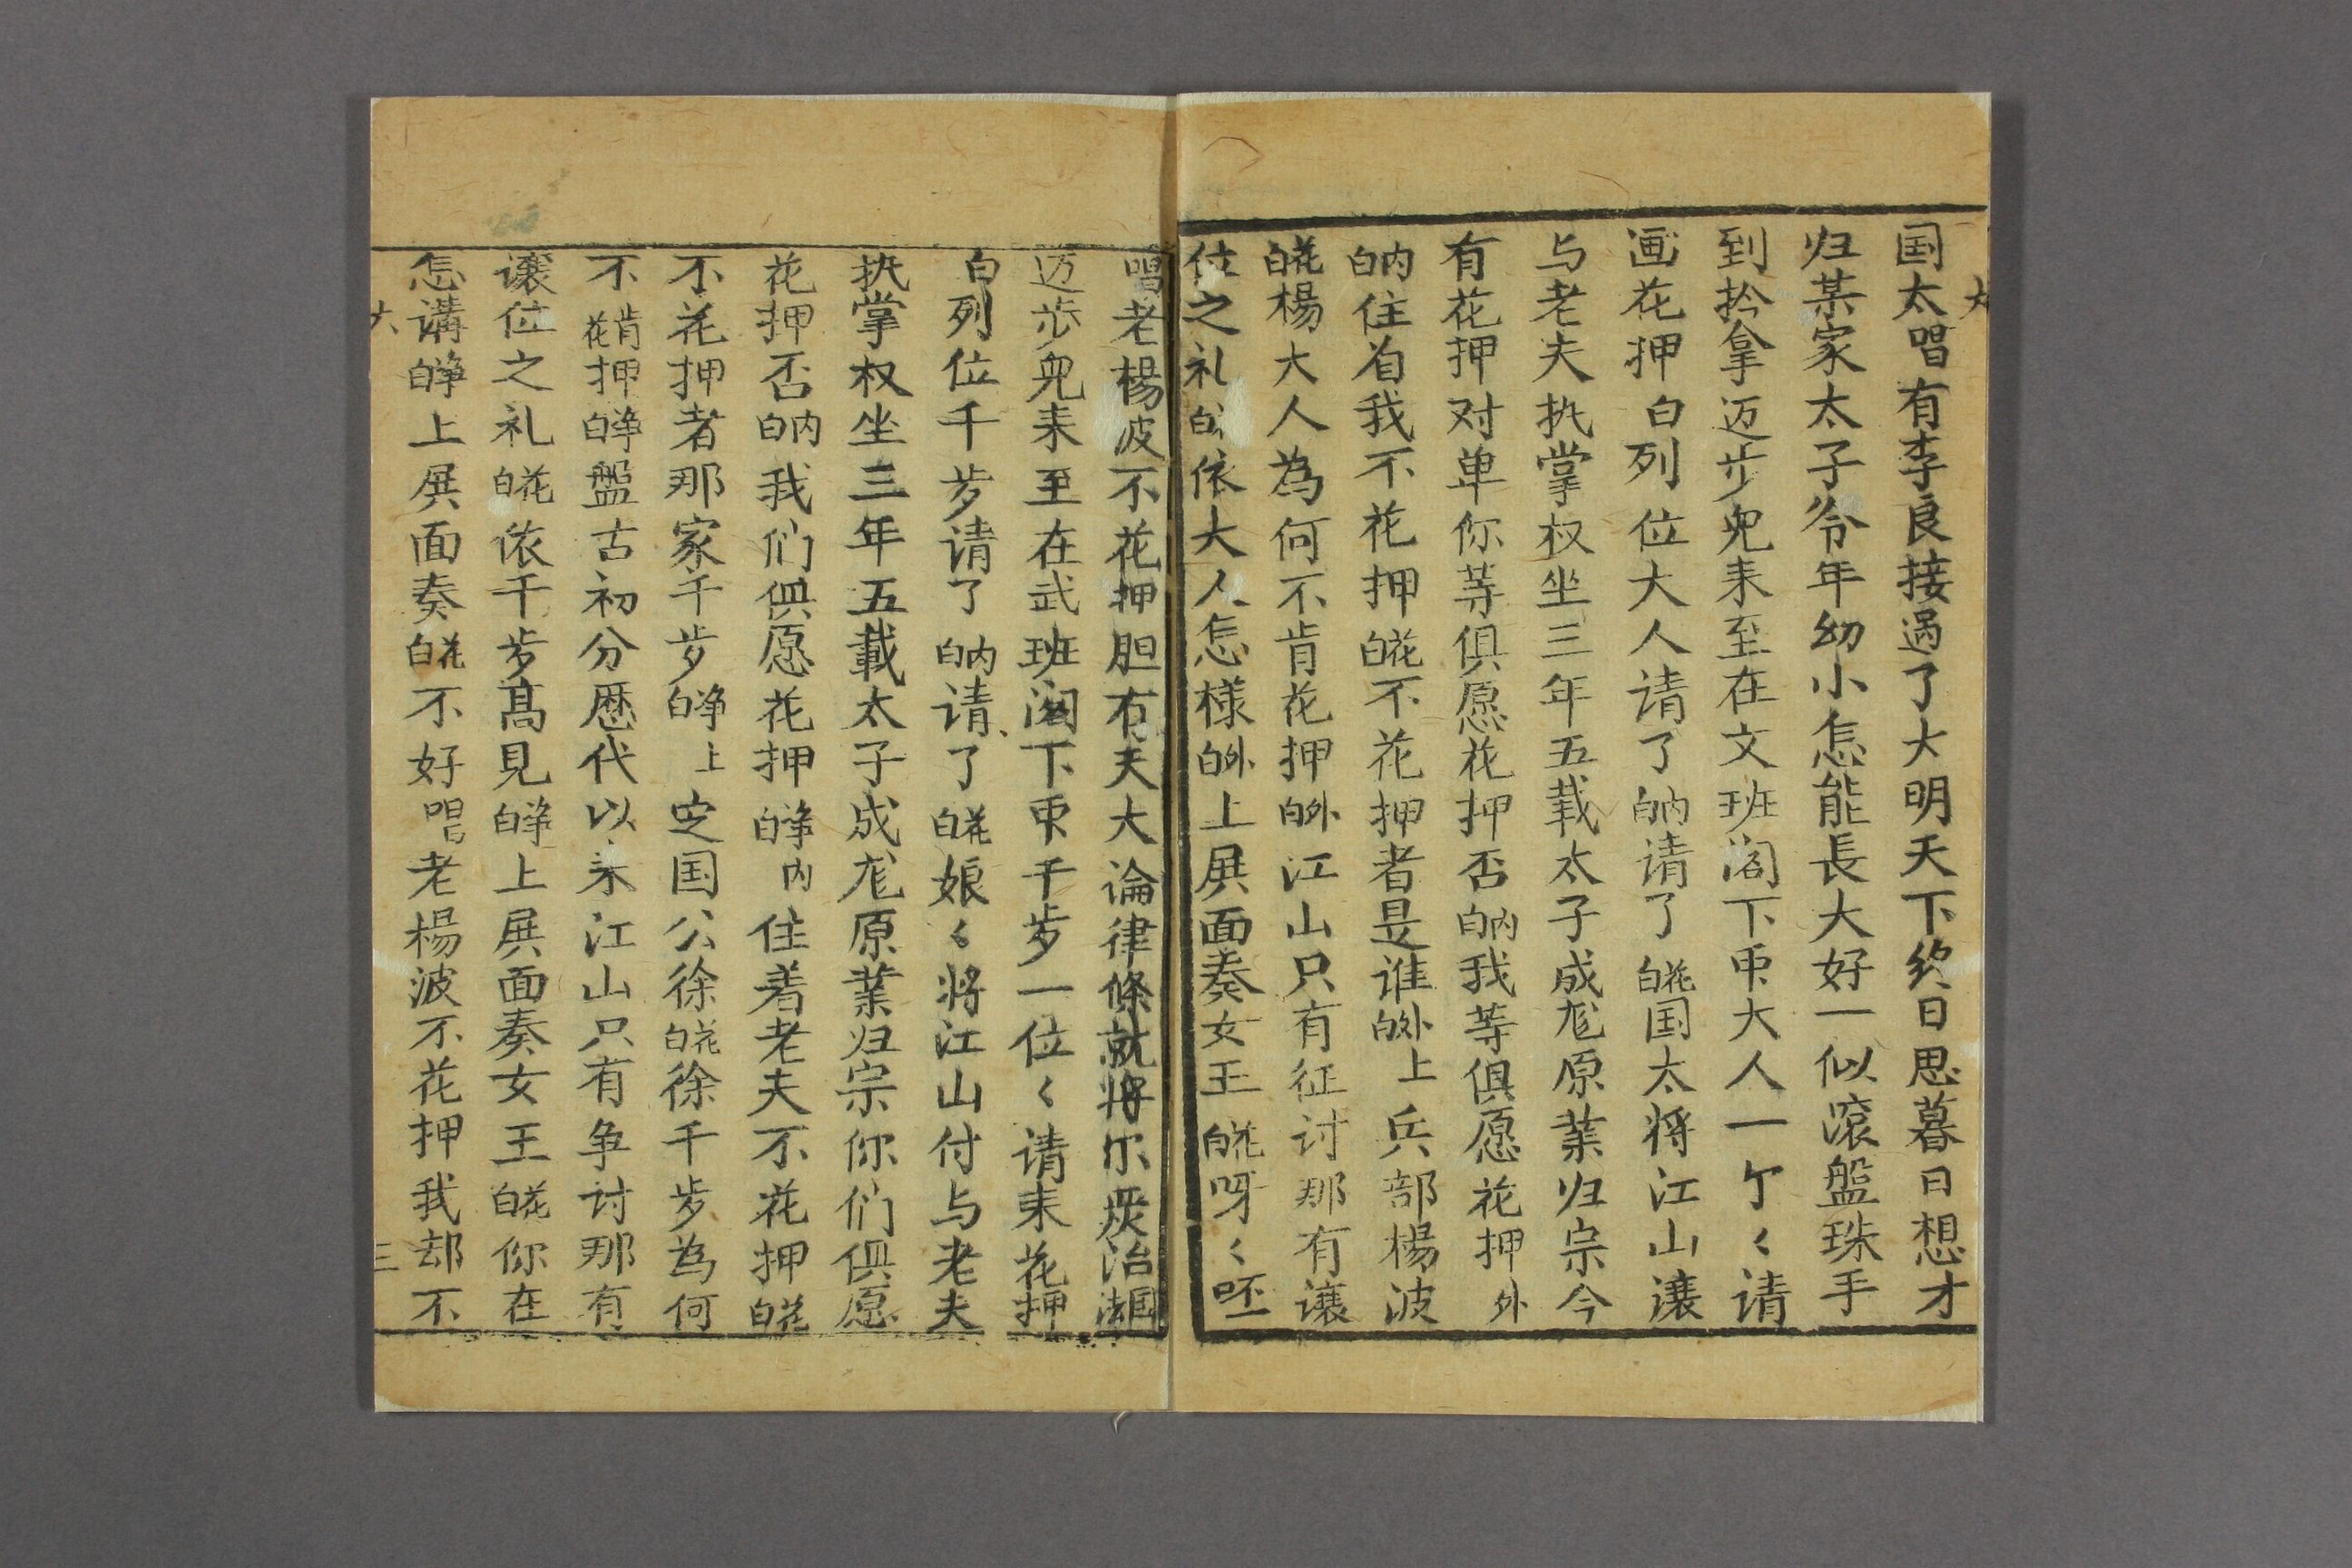 大
国太唱有李良接过了大明天下终日思暮日想才
归某家太子爷年幼小怎能長大好一似滾盤珠手
到拎拿迈步兜来至在文班阁下束大人一个〻请
画花押白列位大人请了内白请了花白国太将江山讓
与老夫执掌权坐三年五载太子成尨原業归宗今
有花押对单你等俱愿花押否内白我等俱愿花押外
内白住着我不花押花白不花押者是谁外白上兵部楊波
花白楊大人為何不肯花押外白江山只有征讨那有讓
位之礼白依大人怎樣外白上殿面奏女王花白呀〻呸
唱老楊波不花押胆有天大論律條就将尔
迈步兜来至在武班阁下束千岁一位〻请来花押
白列位千岁请了内白请了花白娘〻将江山付与老夫
执掌权坐三年五載太子成尨原業归宗你们俱愿
花押否内白我们俱愿花押净白内住着老夫不花押花白
不花押者那家千岁净白上定国公徐花白徐千岁為何
不肯花押净白盤古初分歷代以来江山只有争讨那有
讓位之礼花白依千岁髙見净白上殿面奏女王花白你在
怎講净白上殿面奏花白不好唱老楊波不花押我却不
六 三